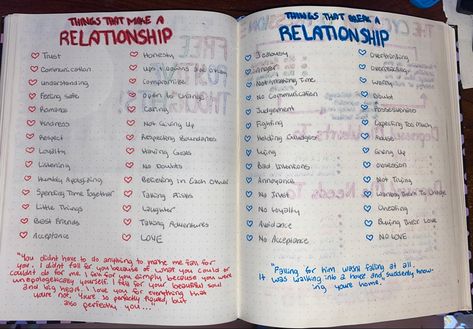 THINGS THAT MAKE A
RELATIONSHIP
Trust
Communication
Understanding
Feeling Safe
Romance
Kindness
Respect
Loyalty
Listening
Humbly Apologizing
Spending Time Together
Little Things
Best Friends
Acceptance
Honesty
Compromise
Caring
Not Giving Up
Respecting Boundaries
Having Goals
No Doubts
Believing In Each Other
Taking Risks
Laughter
Taking Adventures
LOVE
"You didn't have to do anything to make me fall for
you. I didn't fall for you because of what you could or
couldn't do for me. I fell for you simply because you were
unapologetically yourself. I fell for your beautiful soul
and big heart. I love you for everything that
you're not. You're so perfectly flawed, but
also perfectly you..."
THINGS THAT BREAK A
RELATIONSHIP
Jealousy
Not Making Time
No Communication
Judgement
Fighting
Holding Grudges
Lying
Bad Intentions
Annoyance
No Trust
No Loyalty
Avoidance
No Acceptance
Overthinking
Overreacting
Worry
Doubt
Possessiveness
Expecting Too Much
Abuse
Giving Up
Obsession
Not Trying
Wanting Them To Change
Cheating
Buying Their Love
NO LOVE
"Falling for him wasn't falling at all.
It was walking into a house and suddenly know-
ing you're home."